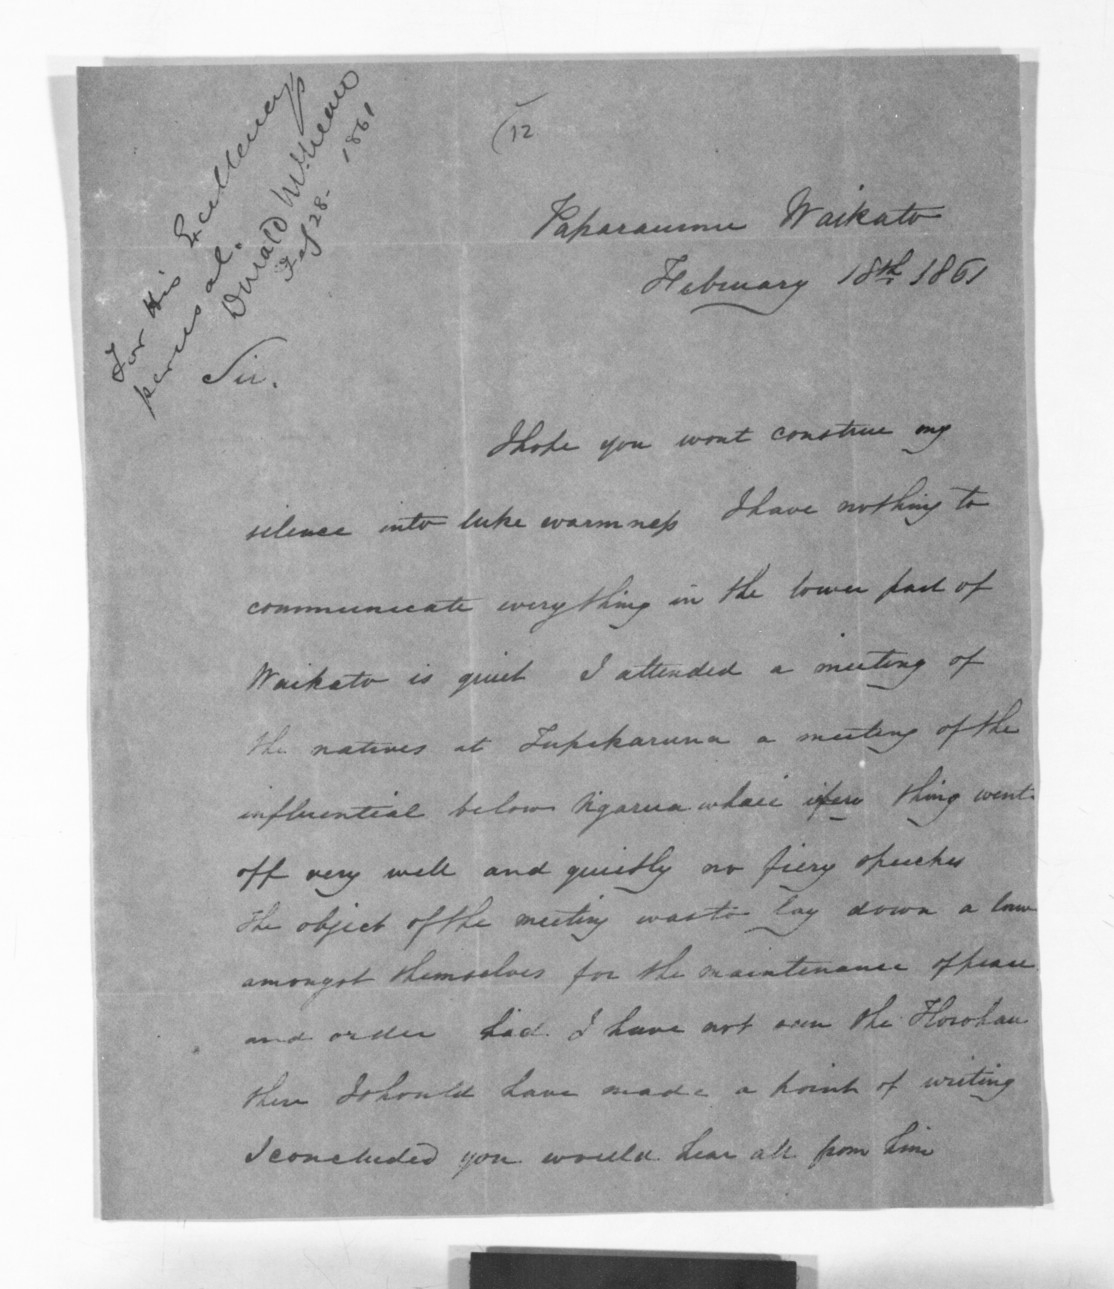 For His Excellency's
perusal.
Donald McLean
Feb 28 - 1861
12
Waikato
February 18th 1861
Sir.
I hope you wont construe my
silence into luke warmness I have nothing to
communicate everything in the lower part of
Waikato is quiet I attended a meeting of
the natives at Tupekaruna a meeting of the
influential below thing went
off very well and quietly no fiery speeches
the object of the meeting was to lay down a law
amongst themselves for the maintenance of peace
and order had I have not seen the
there I should have made a point of writing
I concluded you would hear all from him